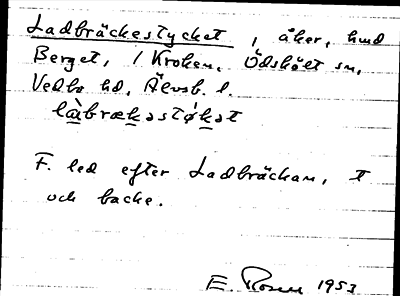 Ladbräckestycket, åker, hmd
Berget, 1 Kroken, Ödskölt sn,
Vedbo hd, Älvsb. l.
là̱bræḵəstø̀ḵət
F. led efter Ladbräckan, t
och backe.
E. Rosell 1953